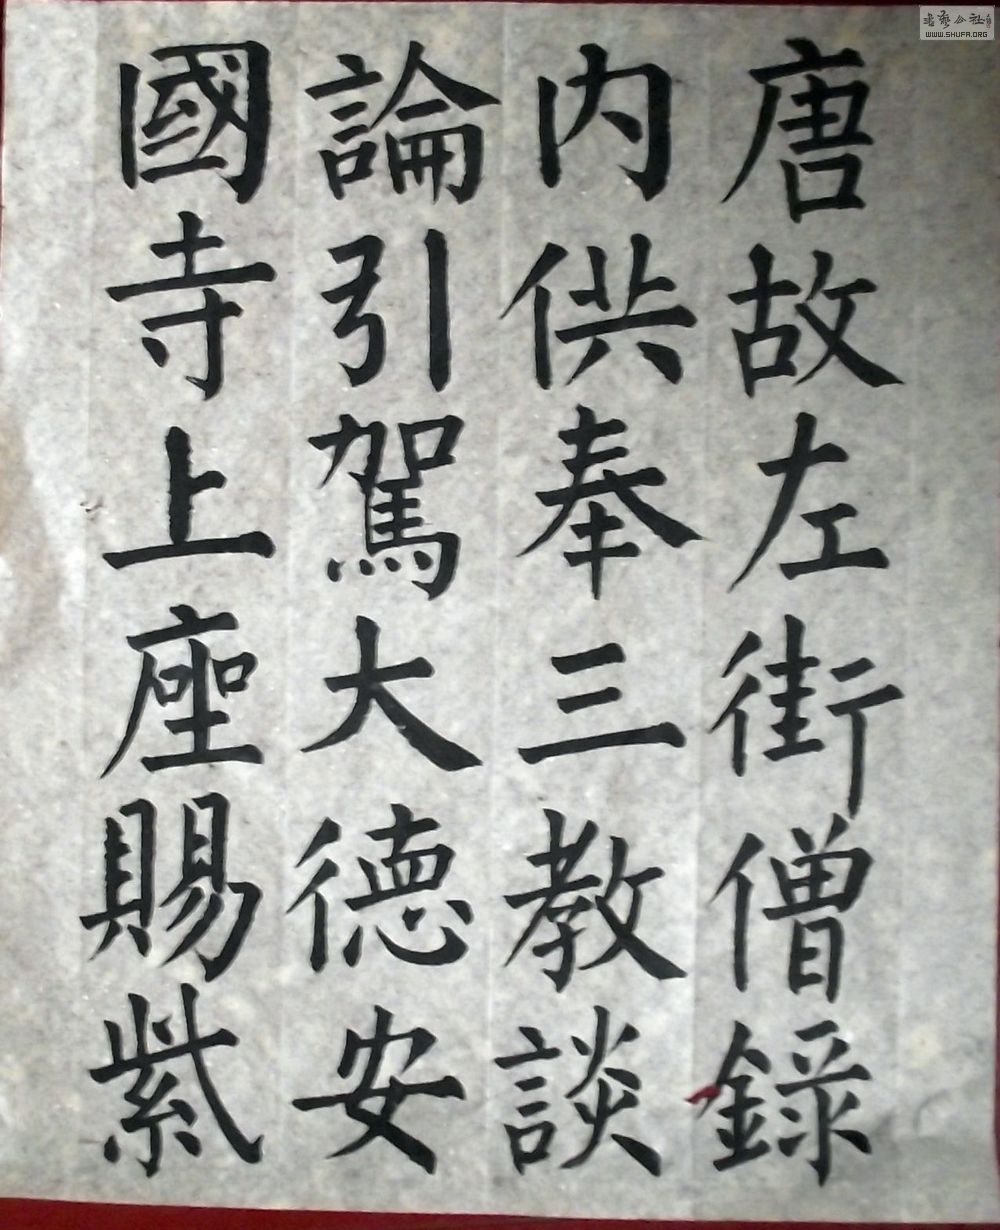 唐故左街僧錄
内供奉三教談
論引駕大德安
國寺上座賜紫
書藝公社
WWW.SHUFA.ORG